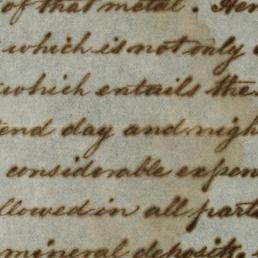 of that metal. Hen
which is not only
which entails the
tend day and nigh
considerable expen
llowed in all parts
mineral deposits,